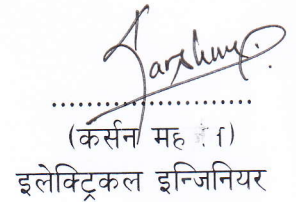 (कर्सन
इलेक्ट्रिकल इन्जिनियर